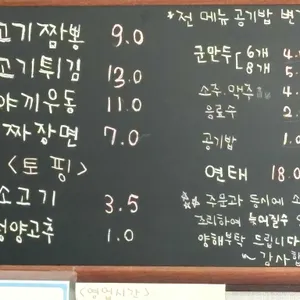 고기짬뽕 9.0
고기튀김 13.0
야끼우동 11.0
짜장면 7.0
<토핑>
소고기 3.5
청양고추 1.0
*전 메뉴 공기밥 변
군만두 [ 6개 4.
8개 5.
소주.맥주 4.
음료수 2.
공기밥 1.0
연태 18.0
주문과 동시에
조리하여 늦어질수
양해부탁 드립니다
~감사합
<영업시간>